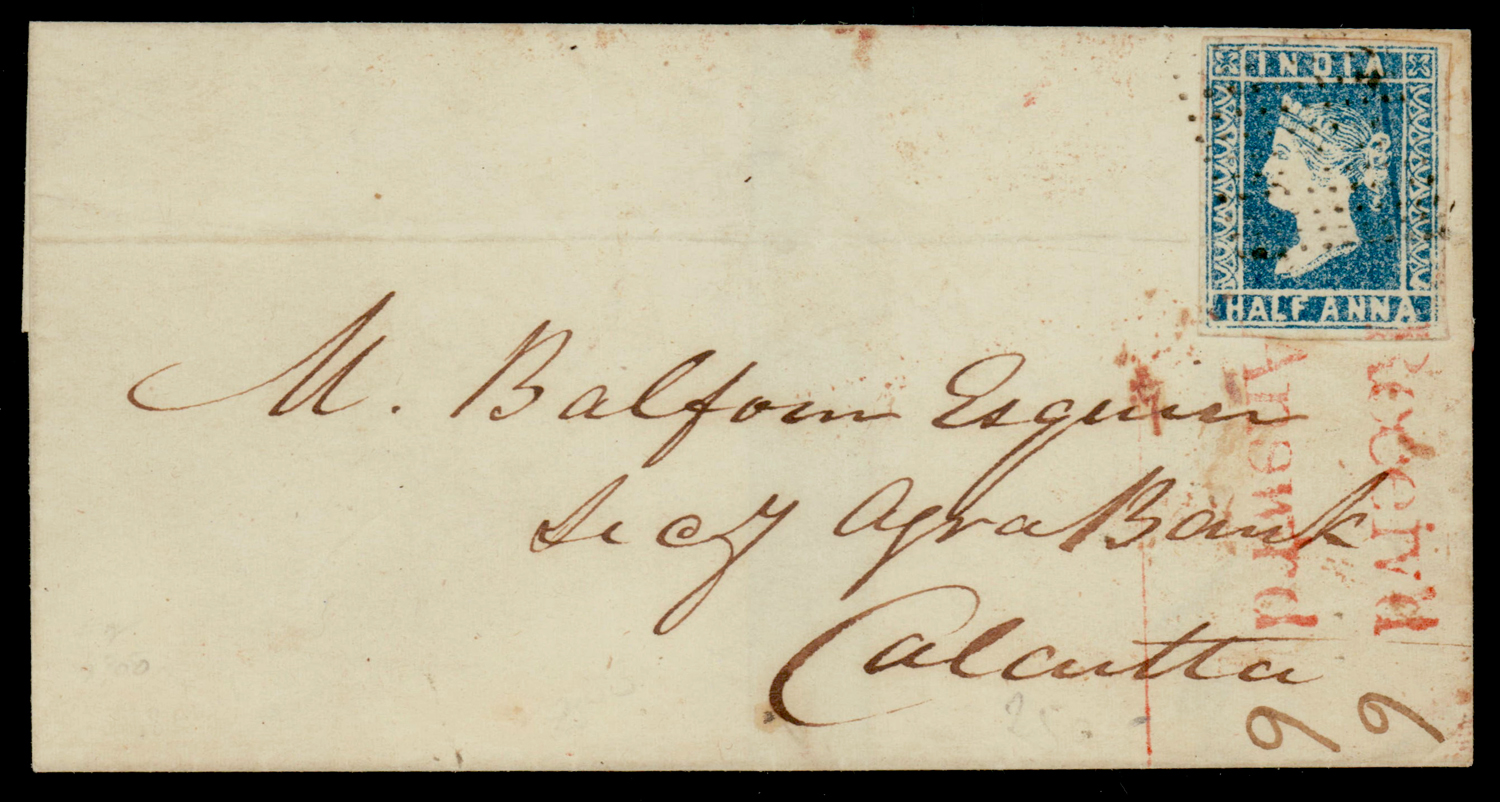 INDIA
HALF ANNA
M. Balfour Esquire
Secy Agra Bank
Calcutta
Receiv'd
Answrd
9
9